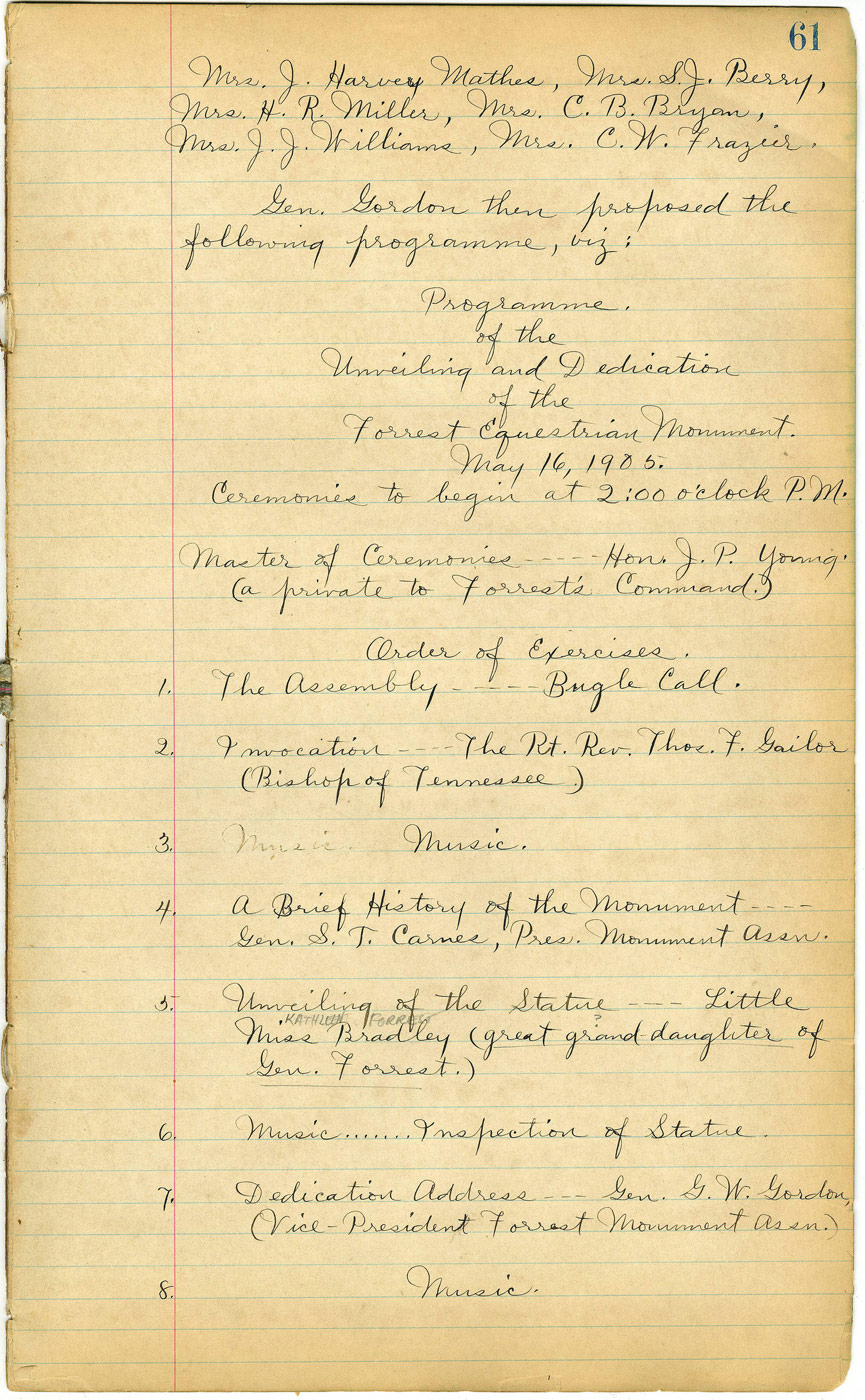 61
Mrs. J. Harvey Mathes, Mrs. S. J. Berry,
Mrs. H. R. Miller, Mrs. C. B. Bryan,
Mrs. J. J. Williams, Mrs. C. W. Frazier.
Gen. Gordon then proposed the
following programme, viz:
Programme.
of the
Unveiling and Dedication
of the
Forrest Equestrian Monument.
May 16, 1905.
Ceremonies to begin at 2:00 o'clock P.M.
Master of Ceremonies ---- Hon. J. P. Young.
(a private to Forrest's Command.)
Order of Exercises.
1. The Assembly ---- Bugle Call.
2. Invocation ---- The Rt. Rev. Thos. F. Gailor
(Bishop of Tennessee.)
3. Music. Music.
4. A Brief History of the Monument ----
Gen. S. T. Carnes, Pres. Monument Assn.
5. Unveiling of the Statue --- Little
KATHLEEN FORREST ?
Miss Bradley (great grand daughter of
Gen. Forrest.)
6. Music.......Inspection of Statue.
7. Dedication Address --- Gen. G. W. Gordon,
(Vice-President Forrest Monument Assn.)
8. Music.